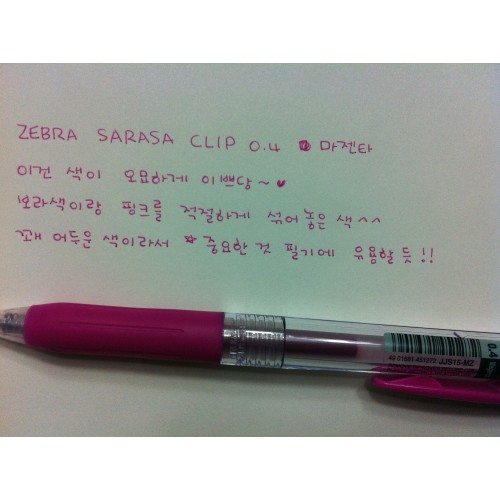 ZEBRA SARASA CLIP 0.4 마젠타
이건 색이 오묘하게 이쁘당~♥
보라색이랑 핑크를 적절하게 섞어놓은 색^^
꽤 어두운 색이라서 ★중요한 것 필기에 유용할듯!!
JJS15-MZ
0.4